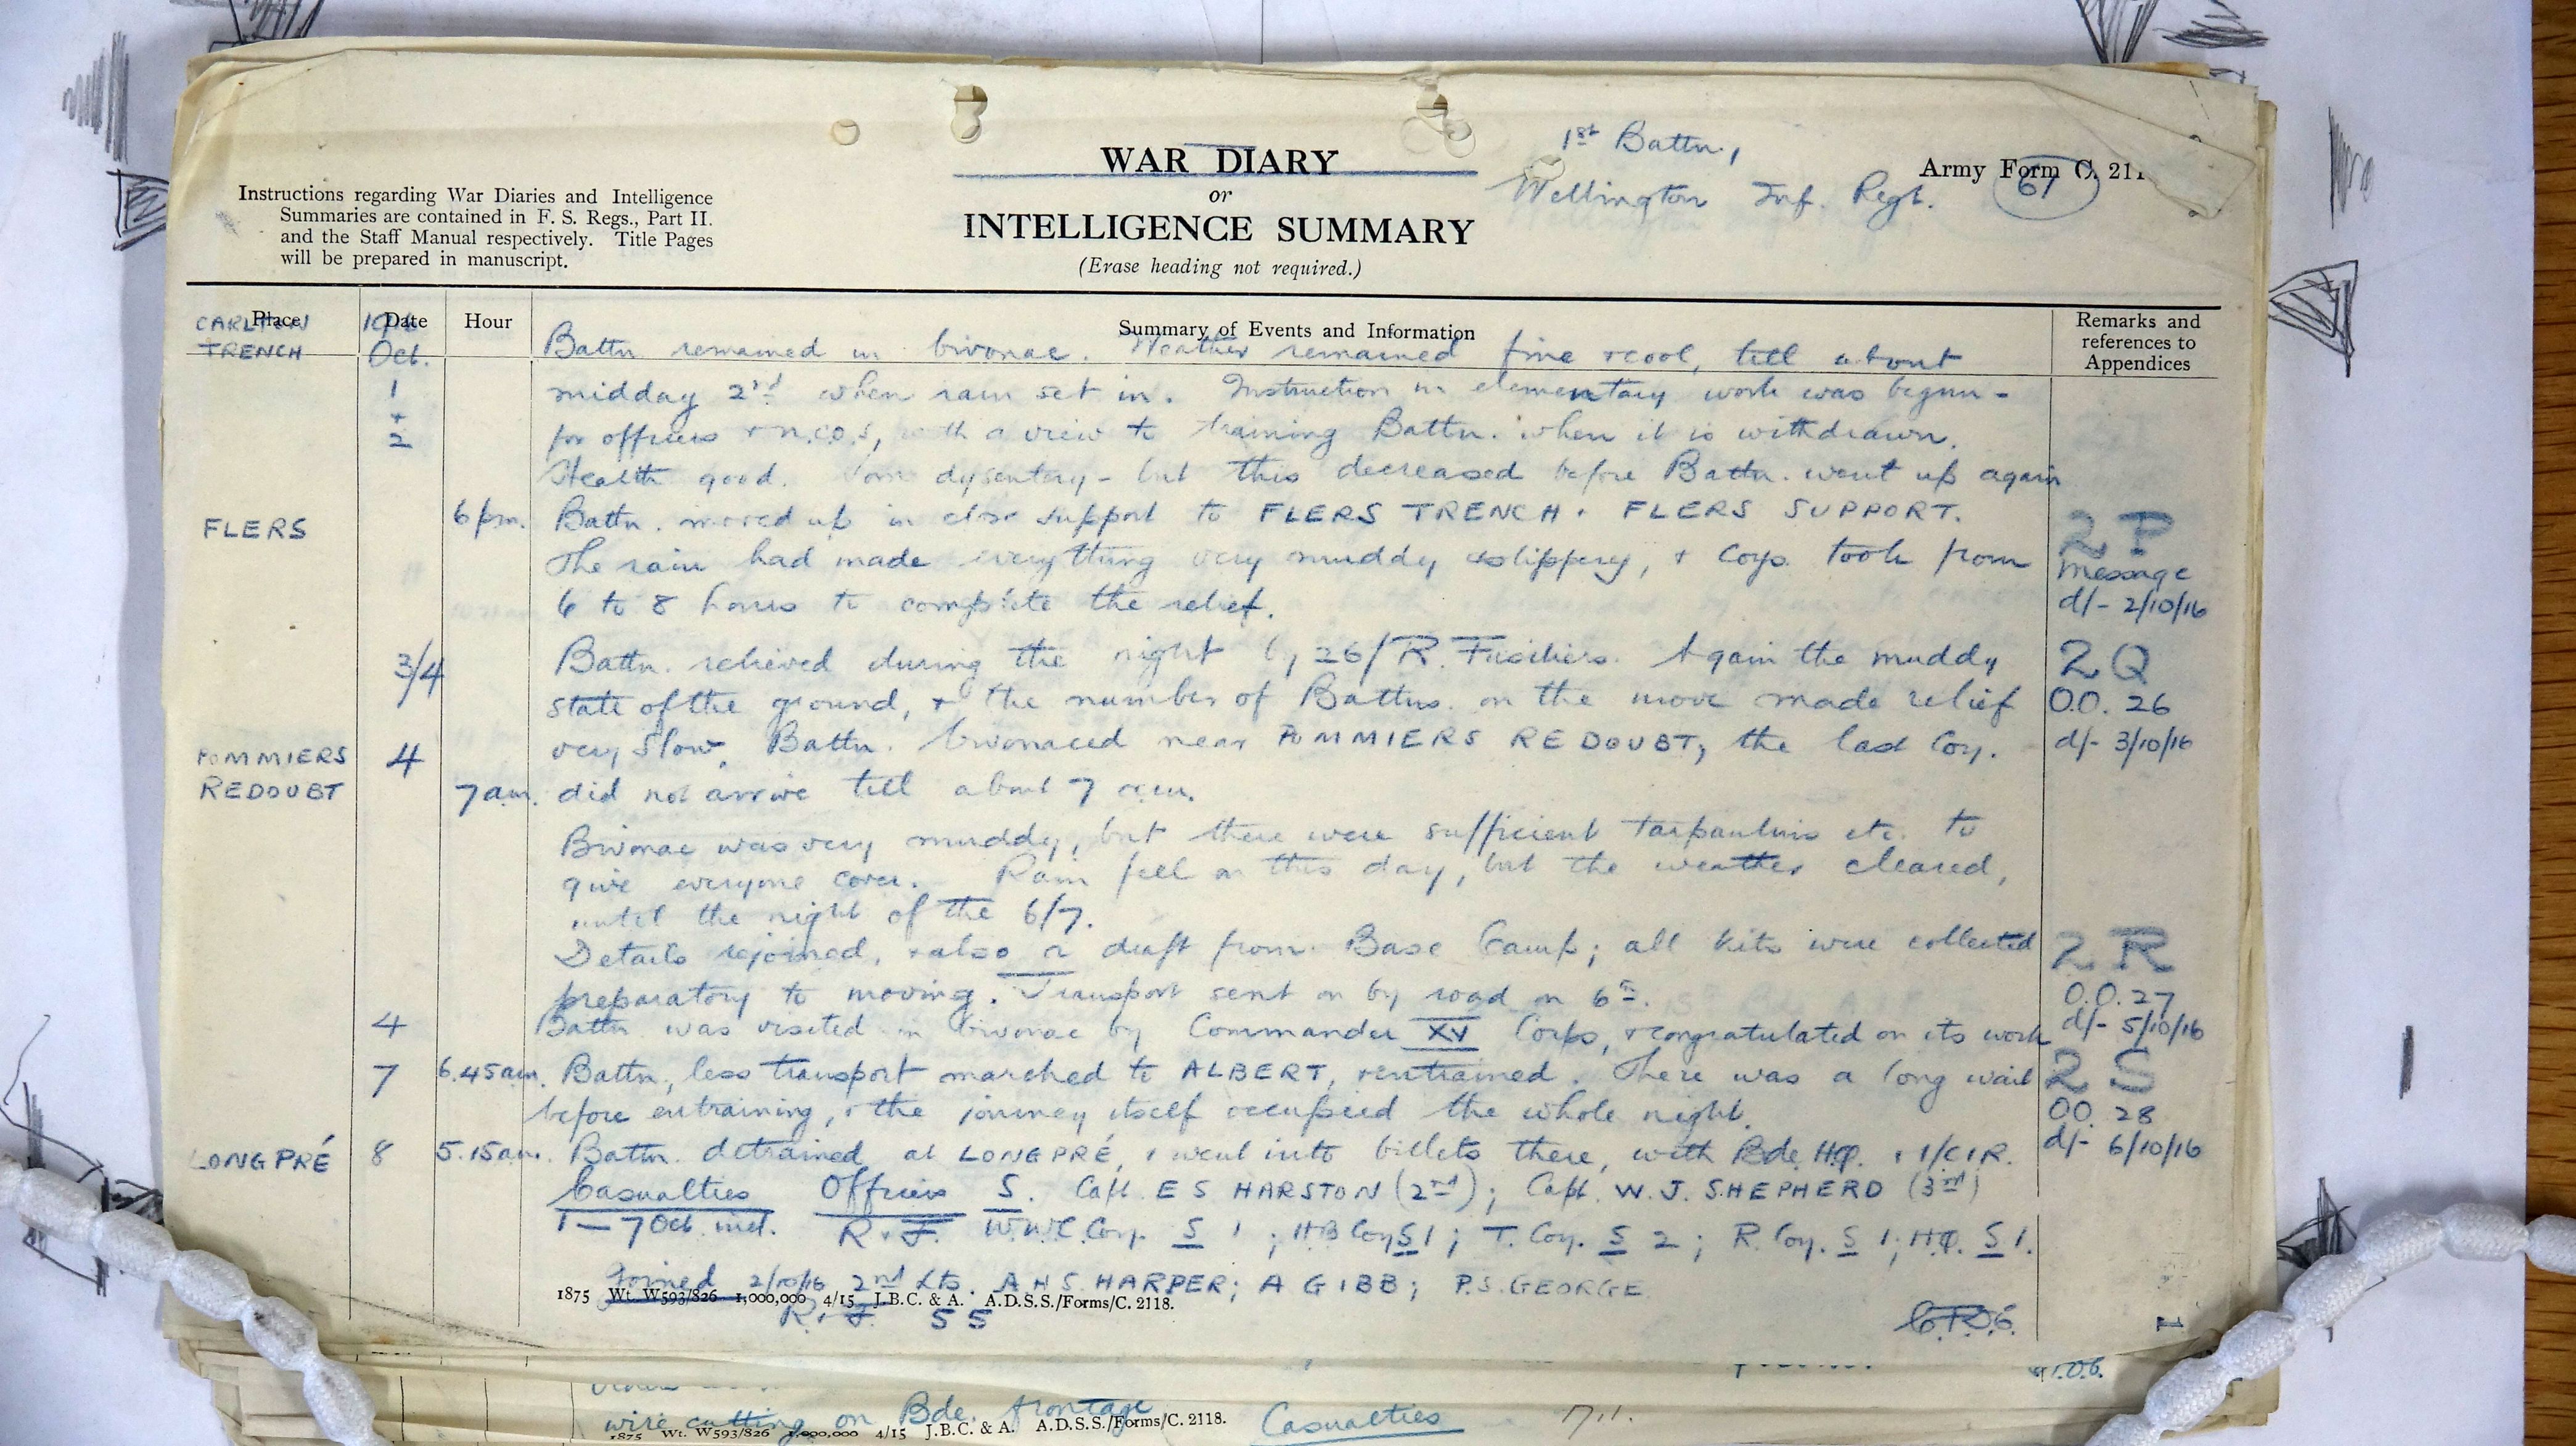 1st Battn,
Wellington Inf. Regt.
Army Form C. 211
67
WAR DIARY
or
INTELLIGENCE SUMMARY
(Erase heading not required.)
Instructions regarding War Diaries and Intelligence
Summaries are contained in F. S. Regs., Part II.
and the Staff Manual respectively. Title Pages
will be prepared in manuscript.
Place Date Hour Summary of Events and Information Remarks and references to Appendices
CARLTON TRENCH 1916 Oct. Battn remained in bivouac. Weather remained fine & cool, till about
1 midday 2nd when rain set in. Instruction in elementary work was begun -
+ 2 for officers + N.C.O.s, with a view to training Battn. when it is withdrawn.
Health good. Some dysentary - but this decreased before Battn. went up again
FLERS 6 pm. Battn. moved up in close support to FLERS TRENCH + FLERS SUPPORT. 2 P
The rain had made everything very muddy & slippery, + Coys. took from message
6 to 8 hours to complete the relief. d/- 2/10/16
3/4 Battn. relieved during the night by 26/R. Fusiliers. Again the muddy 2 Q
state of the ground, + the number of Battns. on the move made relief O.O. 26
POMMIERS 4 very slow. Battn. bivouaced near POMMIERS REDOUBT, the last Coy. d/- 3/10/16
REDOUBT 7 am. did not arrive till about 7 am.
Bivouac was very muddy, but there were sufficient tarpaulins etc. to
give everyone cover. Rain fell on this day, but the weather cleared,
until the night of the 6/7.
Details rejoined, + also a draft from Base Camp; all kits were collected 2 R
preparatory to moving. Transport sent on by road on 6th. O.O. 27
4 Battn was visited in bivouac by Commander XV Corps, + congratulated on its work d/- 5/10/16
7 6.45 am. Battn, less transport marched to ALBERT, + entrained. There was a long wait 2 S
before entraining, + the journey itself occupied the whole night. O.O. 28
LONGPRÉ 8 5.15 am. Battn. detrained at LONGPRÉ, + went into billets there, with Bde. HQ. + 1/CIR. d/- 6/10/16
Casualties Officers S. Capt. E S HARSTON (2nd); Capt. W. J. SHEPHERD (3rd)
1 - 7 Oct. incl. R. & F. W.W.C. Coy. S 1; H.B Coy S 1; T. Coy. S 2; R. Coy. S 1; HQ. S 1.
Joined 2/10/16 2nd Lts. A H S. HARPER; A GIBB; P.S. GEORGE
1875 Wt. W593/826 1,000,000 4/15 J.B.C. & A. A.D.S.S./Forms/C. 2118.
R. & F. 55
wire cutting on Bde. frontage Casualties
1875 Wt. W593/826 1,000,000 4/15 J.B.C. & A. A.D.S.S./Forms/C. 2118.